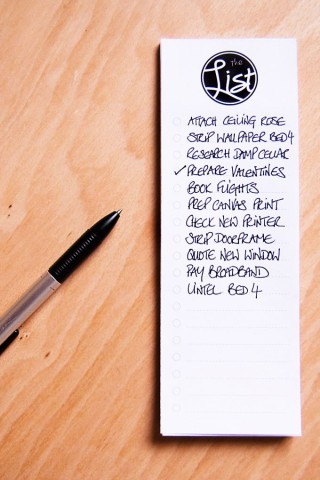 The
List
ATTACH CEILING ROSE
STRIP WALLPAPER BED 4
RESEARCH DAMP CELLAR
✓PREPARE VALENTINES
BOOK FLIGHTS
PREP CANVAS PRINT
CHECK NEW PRINTER
STRIP DOORFRAME
QUOTE NEW WINDOW
PAY BROADBAND
LINTEL BED 4